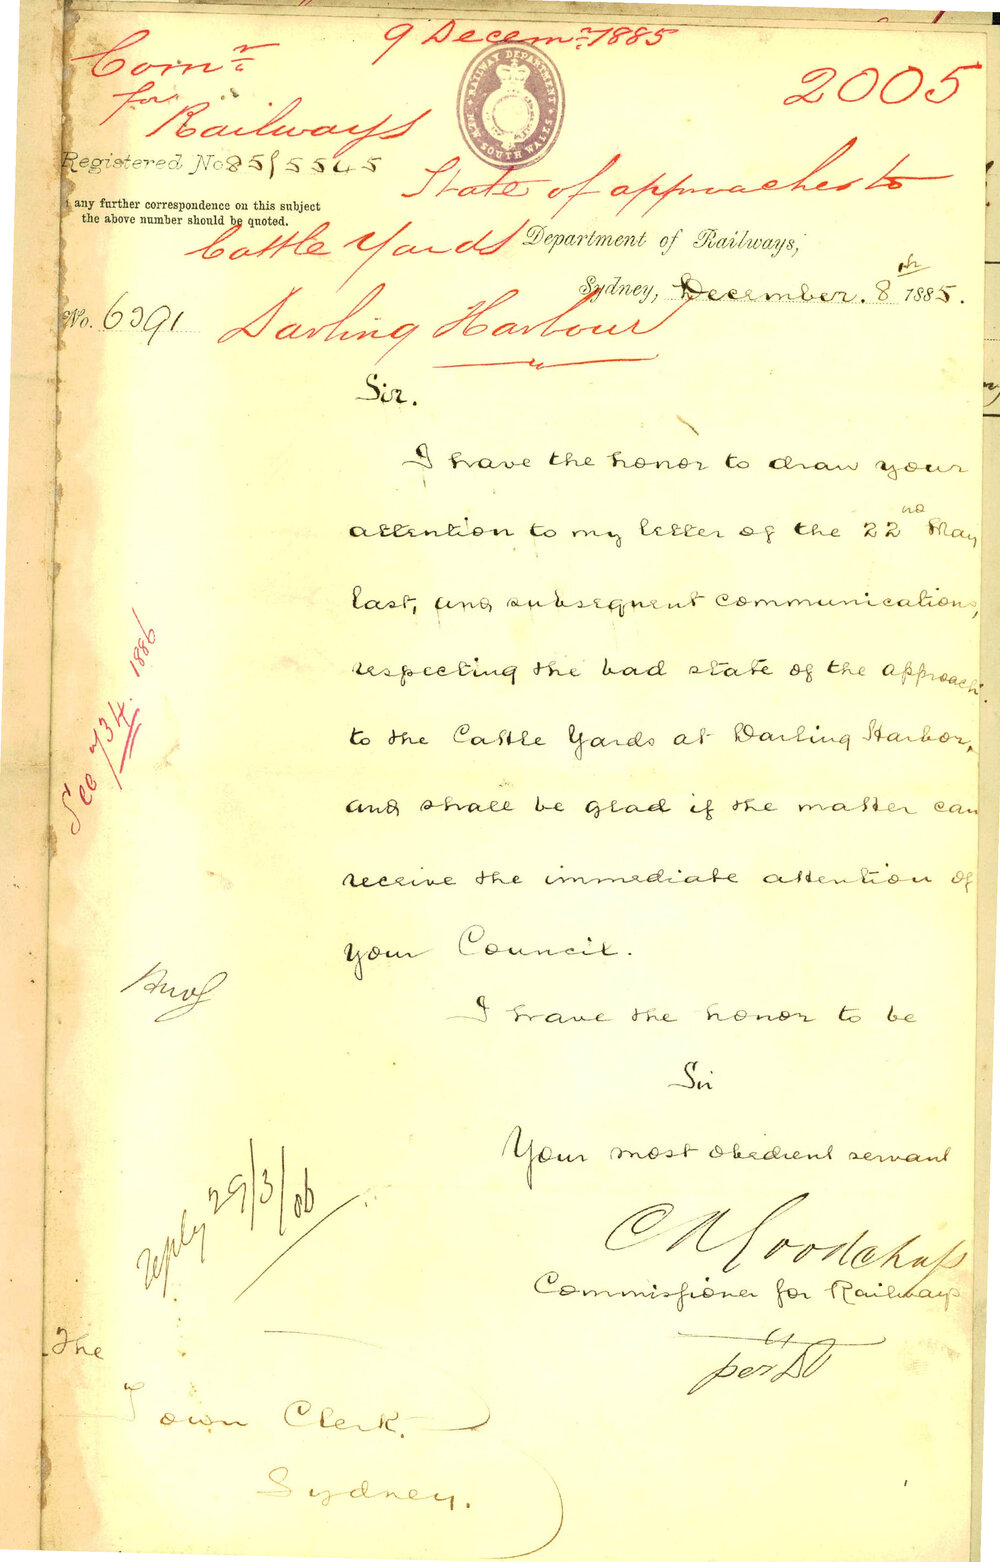 9 Decemr 1885
Comr
for
Railways
2005
RAILWAY DEPARTMENT
NEW SOUTH WALES
Registered No 85/5545
State of approaches to
any further correspondence on this subject
the above number should be quoted.
Cattle Yards
Department of Railways,
Sydney, December. 8th 1885.
No. 6391
Darling Harbour
Sir.
I have the honor to draw your
attention to my letter of the 22nd May
last, and subsequent communications,
respecting the bad state of the approach
to the Cattle Yards at Darling Harbor,
and shall be glad if the matter can
receive the immediate attention of
your Council.
See 734. 1886
I have the honor to be
Sir
Your most obedient servant
Ch A Goodchap
Commissioner for Railways
reply 29/3/86
The
Town Clerk.
Sydney.